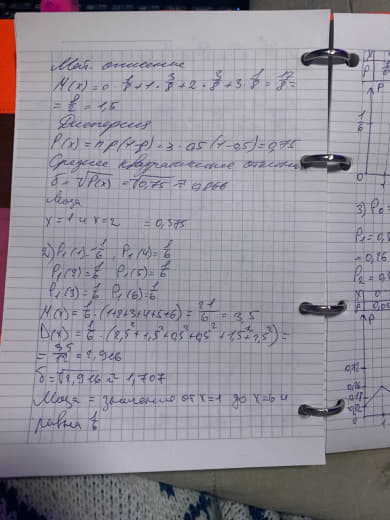 Мат. ожидание
M(x) = 0 · 1/8 + 1 · 3/8 + 2 · 3/8 + 3 · 1/8 = 12/8 =
= 1,5
Дисперсия
D(x) = np(1-p) = 3 · 0,5(1-0,5) = 0,75
Среднее квадратическое
σ = √D(x) = √0,75 ≈ 0,866
Мода
x = 1 и x = 2 = 0,375
2) P₁(1) = 1/6, P₁(4) = 1/6
P₁(2) = 1/6 P₁(5) = 1/6
P₁(3) = 1/6 P₁(6) = 1/6
M(x) = 1/6 · (1+2+3+4+5+6) = 21/6 = 3,5
D(x) = 1/6 · (2,5² + 1,5² + 0,5² + 0,5² + 1,5² + 2,5²) =
= 35/12 = 2,916
σ = √2,916 ≈ 1,707
Мода = значение от x=1 до x=6 и
равна 1/6
3) P₀ =
P₁ = 0,
P₂ = 0,